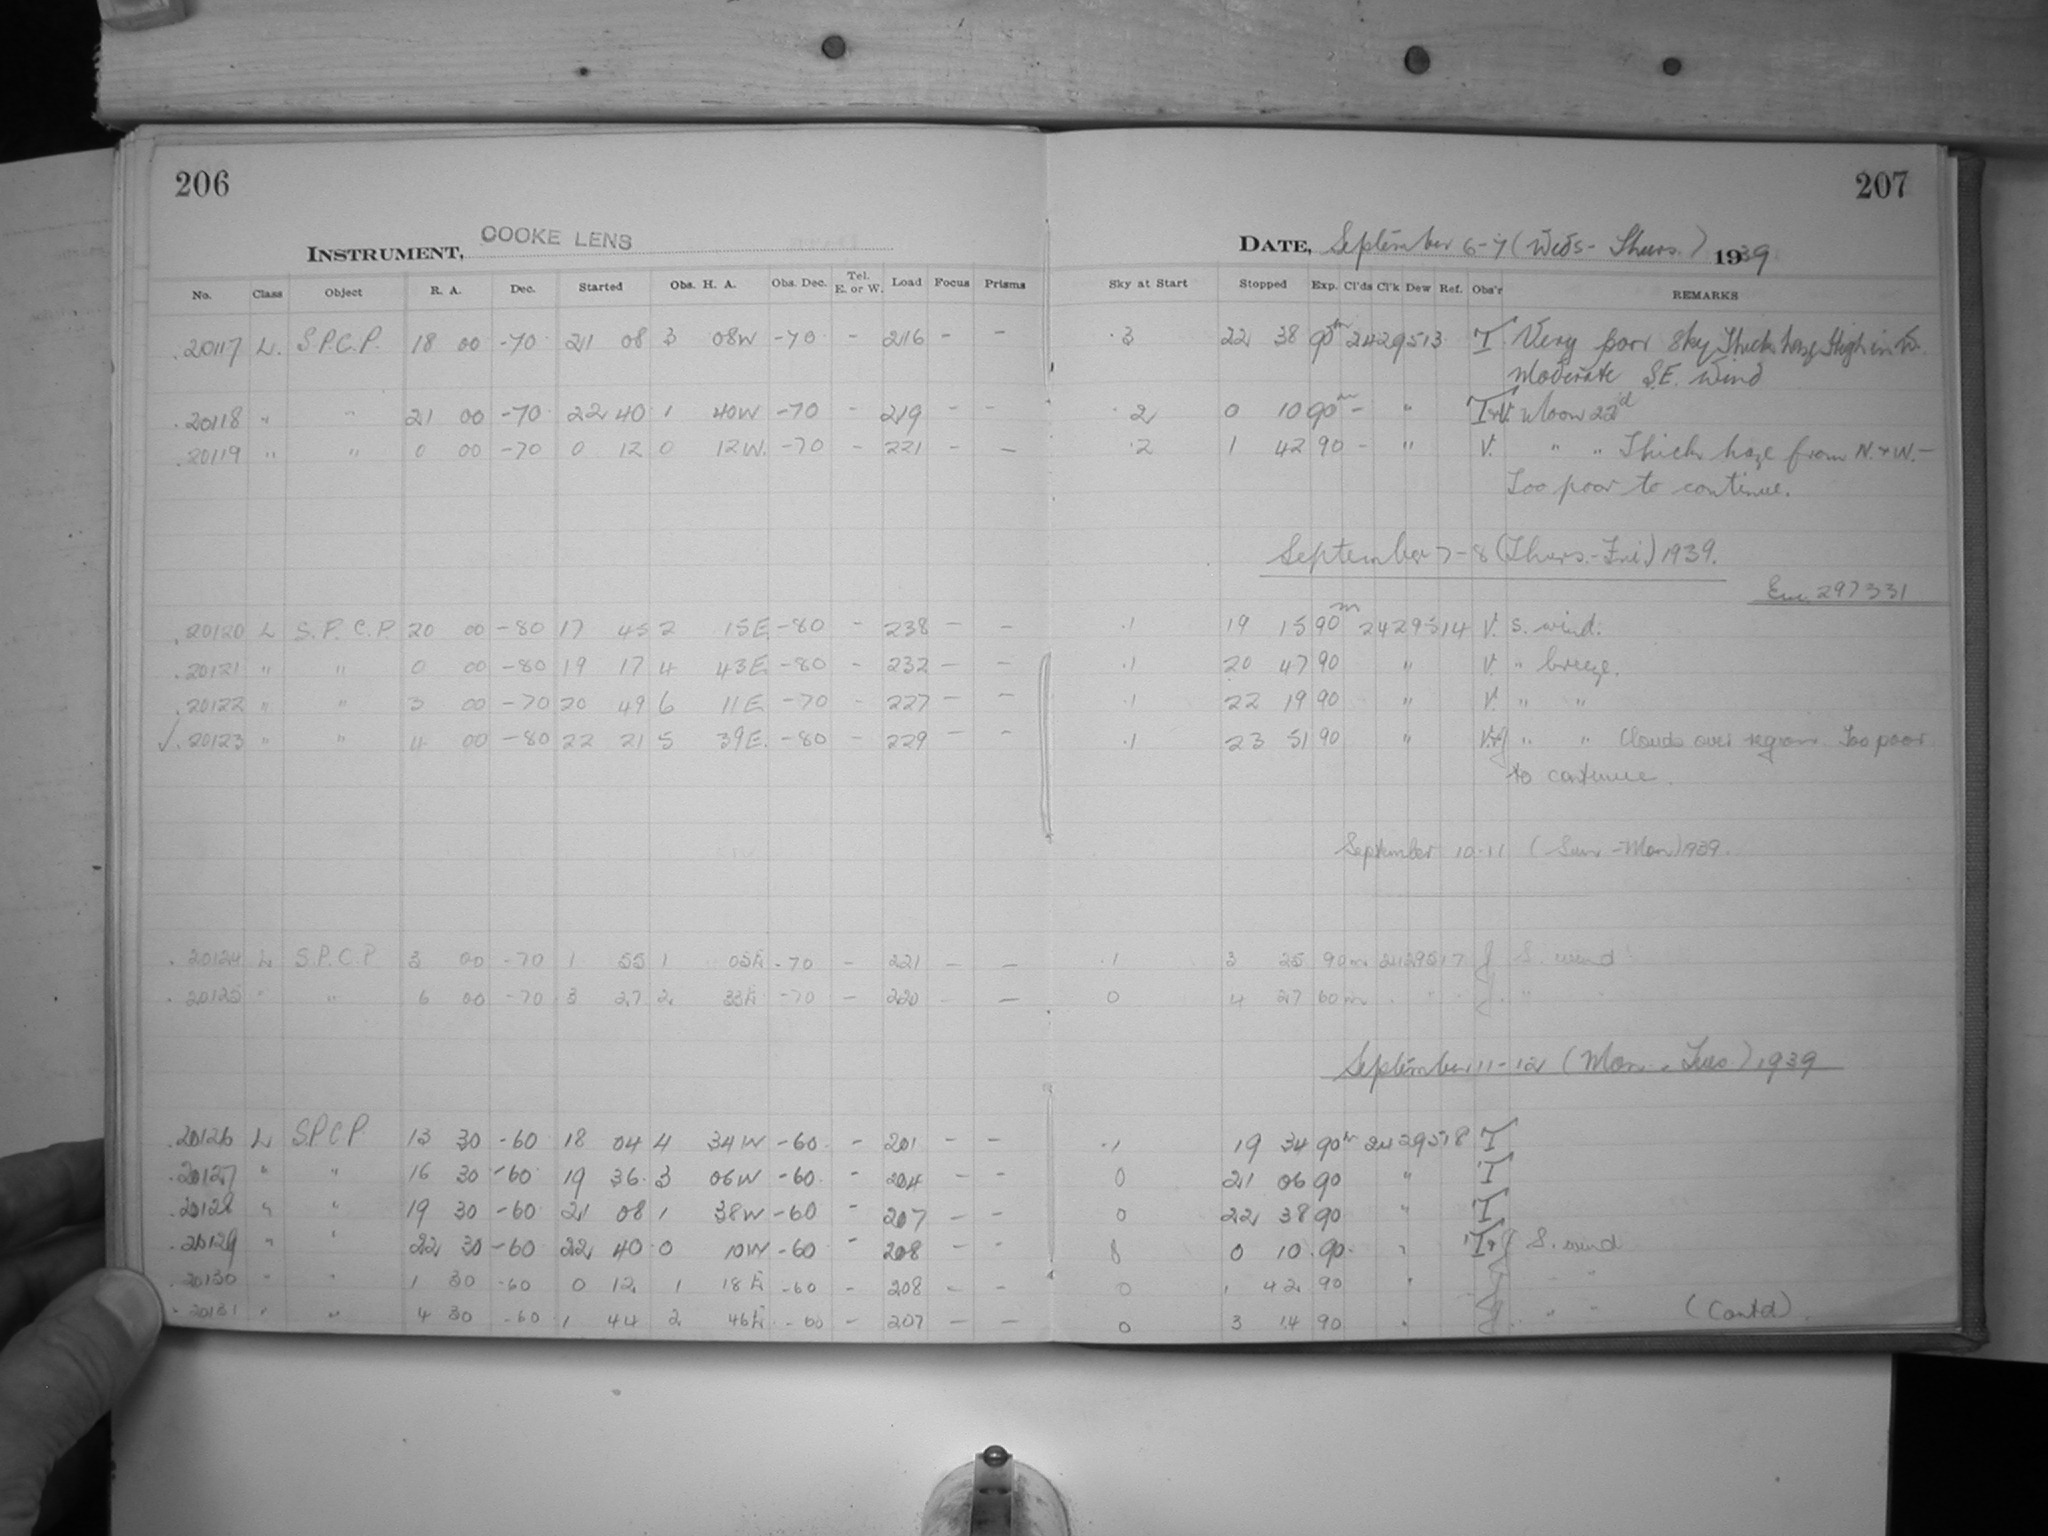 206
207
INSTRUMENT, COOKE LENS
DATE, September 6-7 (Weds - Thurs.) 1939
No. Class Object R. A. Dec. Started Obs. H. A. Obs. Dec. Tel. E. or W. Load Focus Prisms Sky at Start Stopped Exp. Cl'ds Cl'k Dew Ref. Obs'r REMARKS
.20117 L. S.P.C.P. 18 00 -70 21 08 3 08W -70 - 216 - - .3 22 38 90m 2429513 T Very poor sky Thick haze High in W.
Moderate S.E. Wind
.20118 " " 21 00 -70 22 40 1 40W -70 - 219 - - .2 0 10 90m - " T+V. Moon 22d
.20119 " " 0 00 -70 0 12 0 12W. -70 - 221 - - .2 1 42 90 - " V. " " Thick haze from N. + W. -
Too poor to continue.
September 7-8 (Thurs.-Fri) 1939.
Em. 297331
.20120 L S.P.C.P 20 00 -80 17 45 2 15E -80 - 238 - - .1 19 15 90m 2429514 V. S. wind.
.20121 " " 0 00 -80 19 17 4 43E -80 - 232 - - .1 20 47 90 " V. " breeze.
.20122 " " 3 00 -70 20 49 6 11E -70 - 227 - - .1 22 19 90 " V. " "
✓ .20123 " " 4 00 -80 22 21 5 39E. -80 - 229 - - .1 23 51 90 " V+J " " Clouds over region. Too poor
to continue.
September 10-11 (Sun - Mon) 1939.
.20124 L S.P.C.P 3 00 -70 1 55 1 05E -70 - 221 - - .1 3 25 90m 2429517 J S. wind
.20125 " " 6 00 -70 3 27 2 33E -70 - 220 - - 0 4 27 60m " J "
September 11-12 (Mon. - Tues.) 1939
.20126 L S.P.C.P. 13 30 -60 18 04 4 34W -60 - 201 - - .1 19 34 90m 2429518 T
.20127 " " 16 30 -60 19 36 3 06W -60 - 204 - - 0 21 06 90 " T
.20128 " " 19 30 -60 21 08 1 38W -60 - 207 - - 0 22 38 90 " T
.20129 " " 22 30 -60 22 40 0 10W -60 - 208 - - 0 10 90 " T+J S. wind
.20130 " " 1 30 -60 0 12 1 18E -60 - 208 - - 0 1 42 90 " J " "
.20131 " " 4 30 -60 1 44 2 46E -60 - 207 - - 0 3 14 90 " J " " (Contd)